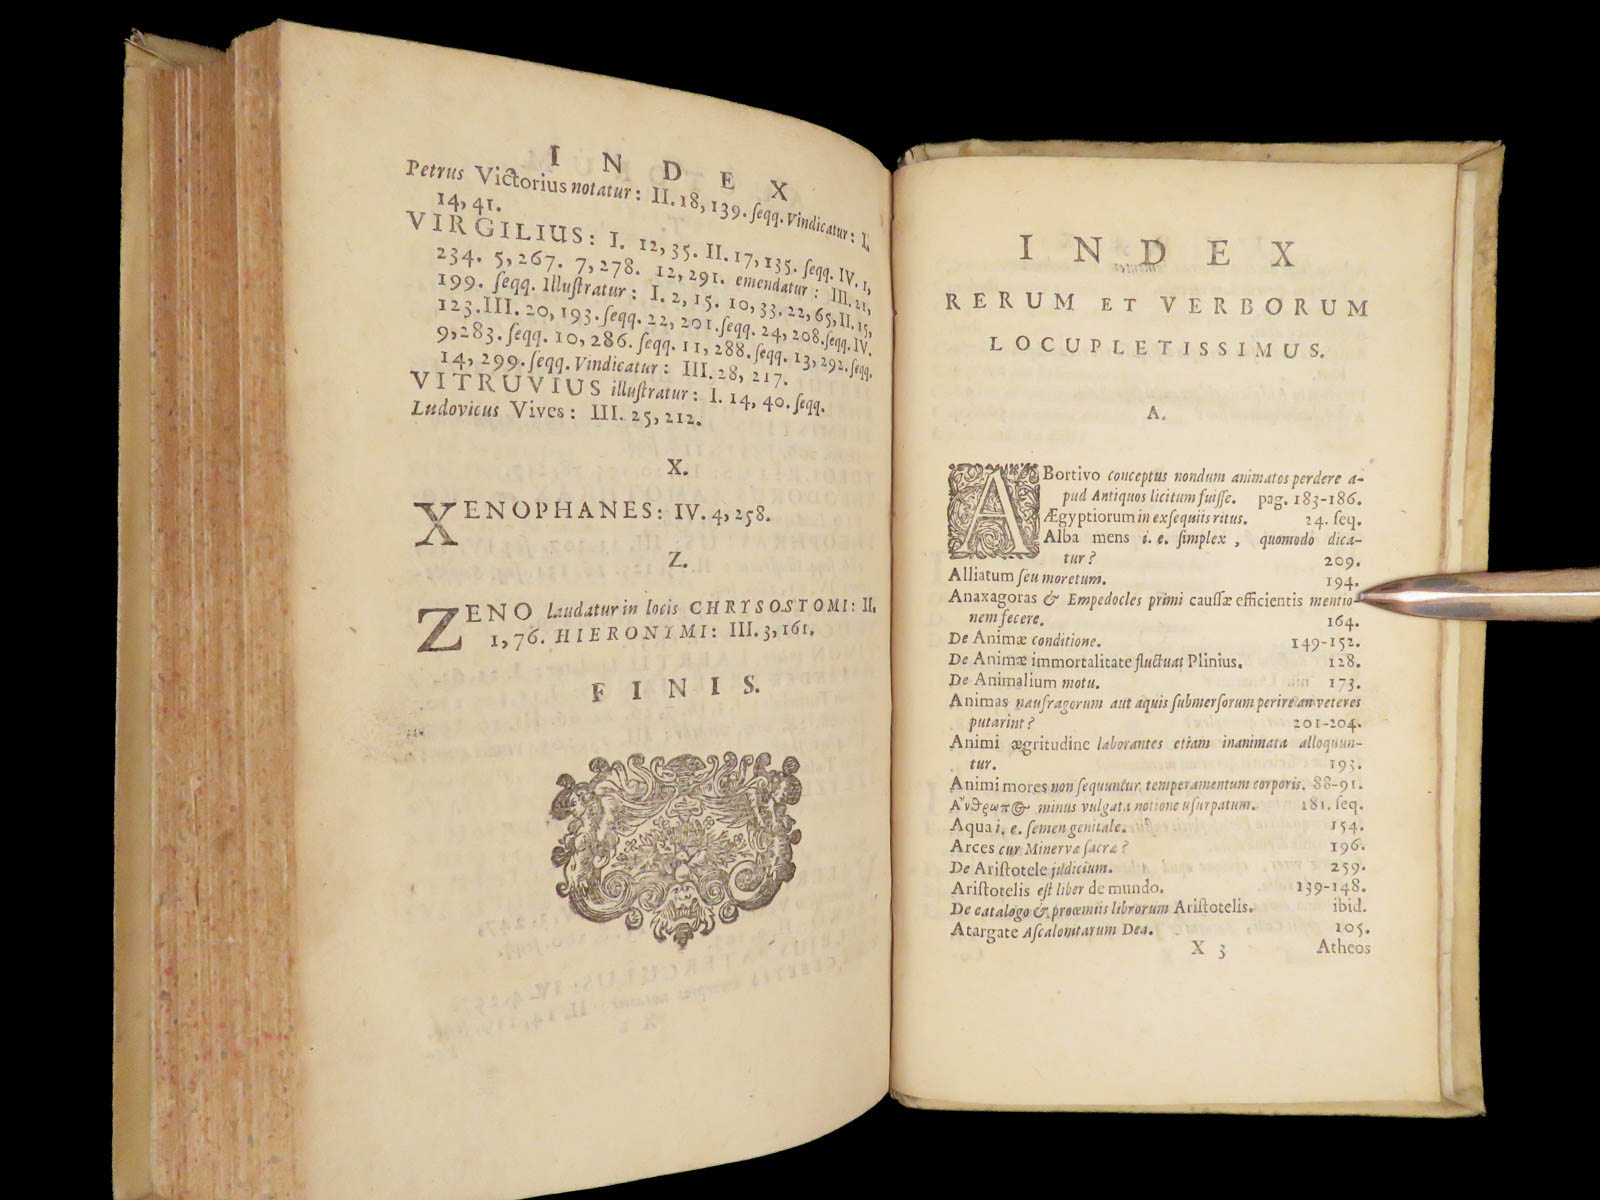 INDEX
Petrus Victorius notatur: II. 18, 139. ſeqq. Vindicatur: I.
14, 41.
VIRGILIUS: I. 12, 35. II. 17, 135. ſeqq. IV. 1,
234. 5, 267. 7, 278. 12, 291. emendatur: III. 21,
199. ſeqq. Illuſtratur: I. 2, 15. 10, 33. 22, 65, II. 15,
123. III. 20, 193. ſeqq. 22, 201. ſeqq. 24, 208. ſeqq. IV.
9, 283. ſeqq. 10, 286. ſeqq. 11, 288. ſeqq. 13, 292. ſeqq.
14, 299. ſeqq. Vindicatur: III. 28, 217.
VITRUVIUS illuſtratur: I. 14, 40. ſeqq.
Ludovicus Vives: III. 25, 212.
X.
XENOPHANES: IV. 4, 258.
Z.
ZENO laudatur in locis CHRYSOSTOMI: II.
1, 76. HIERONYMI: III. 3, 161.
FINIS.
INDEX
RERUM ET VERBORUM
LOCUPLETISSIMUS.
A.
ABortivo conceptus nondum animatos perdere a-
pud Antiquos licitum fuiſſe. pag. 183-186.
Ægyptiorum in exſequiis ritus. 24. ſeq.
Alba mens i. e. ſimplex, quomodo dica-
tur? 209.
Alliatum ſeu moretum. 194.
Anaxagoras & Empedocles primi cauſſæ efficientis mentio-
nem fecere. 164.
De Animæ conditione. 149-152.
De Animæ immortalitate fluctuat Plinius. 128.
De Animalium motu. 173.
Animas naufragorum aut aquis ſubmerſorum perire an veteres
putarint? 201-204.
Animi ægritudine laborantes etiam inanimata alloquun-
tur. 193.
Animi mores non ſequuntur temperamentum corporis. 88-91.
Ἄνθρωπος minus vulgata notione uſurpatum. 181. ſeq.
Aqua i. e. ſemen genitale. 154.
Arces cur Minervæ ſacræ? 196.
De Ariſtotele judicium. 259.
Ariſtotelis eſt liber de mundo. 139-148.
De catalogo & proœmiis librorum Ariſtotelis. ibid.
Atargate Aſcalonitarum Dea. 105.
X 3 Atheos